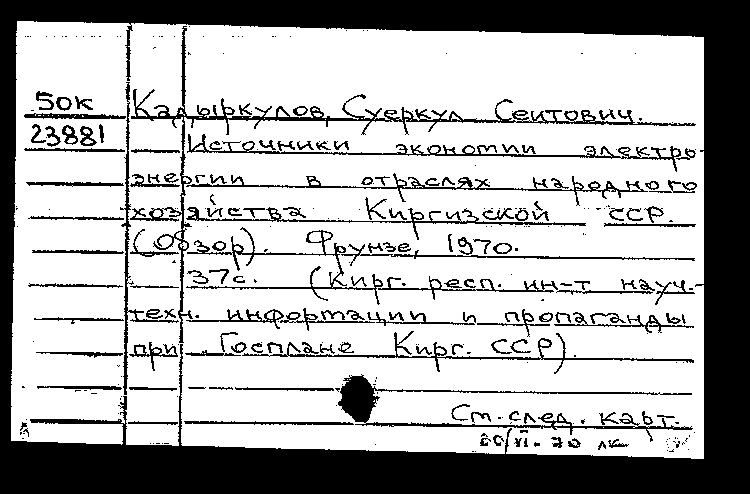 50к Кадыркулов, Суеркул Сеитович.
23881 Источники экономии электро-
энергии в отраслях народного
хозяйства Киргизской ССР.
(Обзор). Фрунзе, 1970.
37с. (Кирг. респ. ин-т науч.-
техн. информации и пропаганды
при Госплане Кирг. ССР).
См. след. карт.
/VI-70 лк